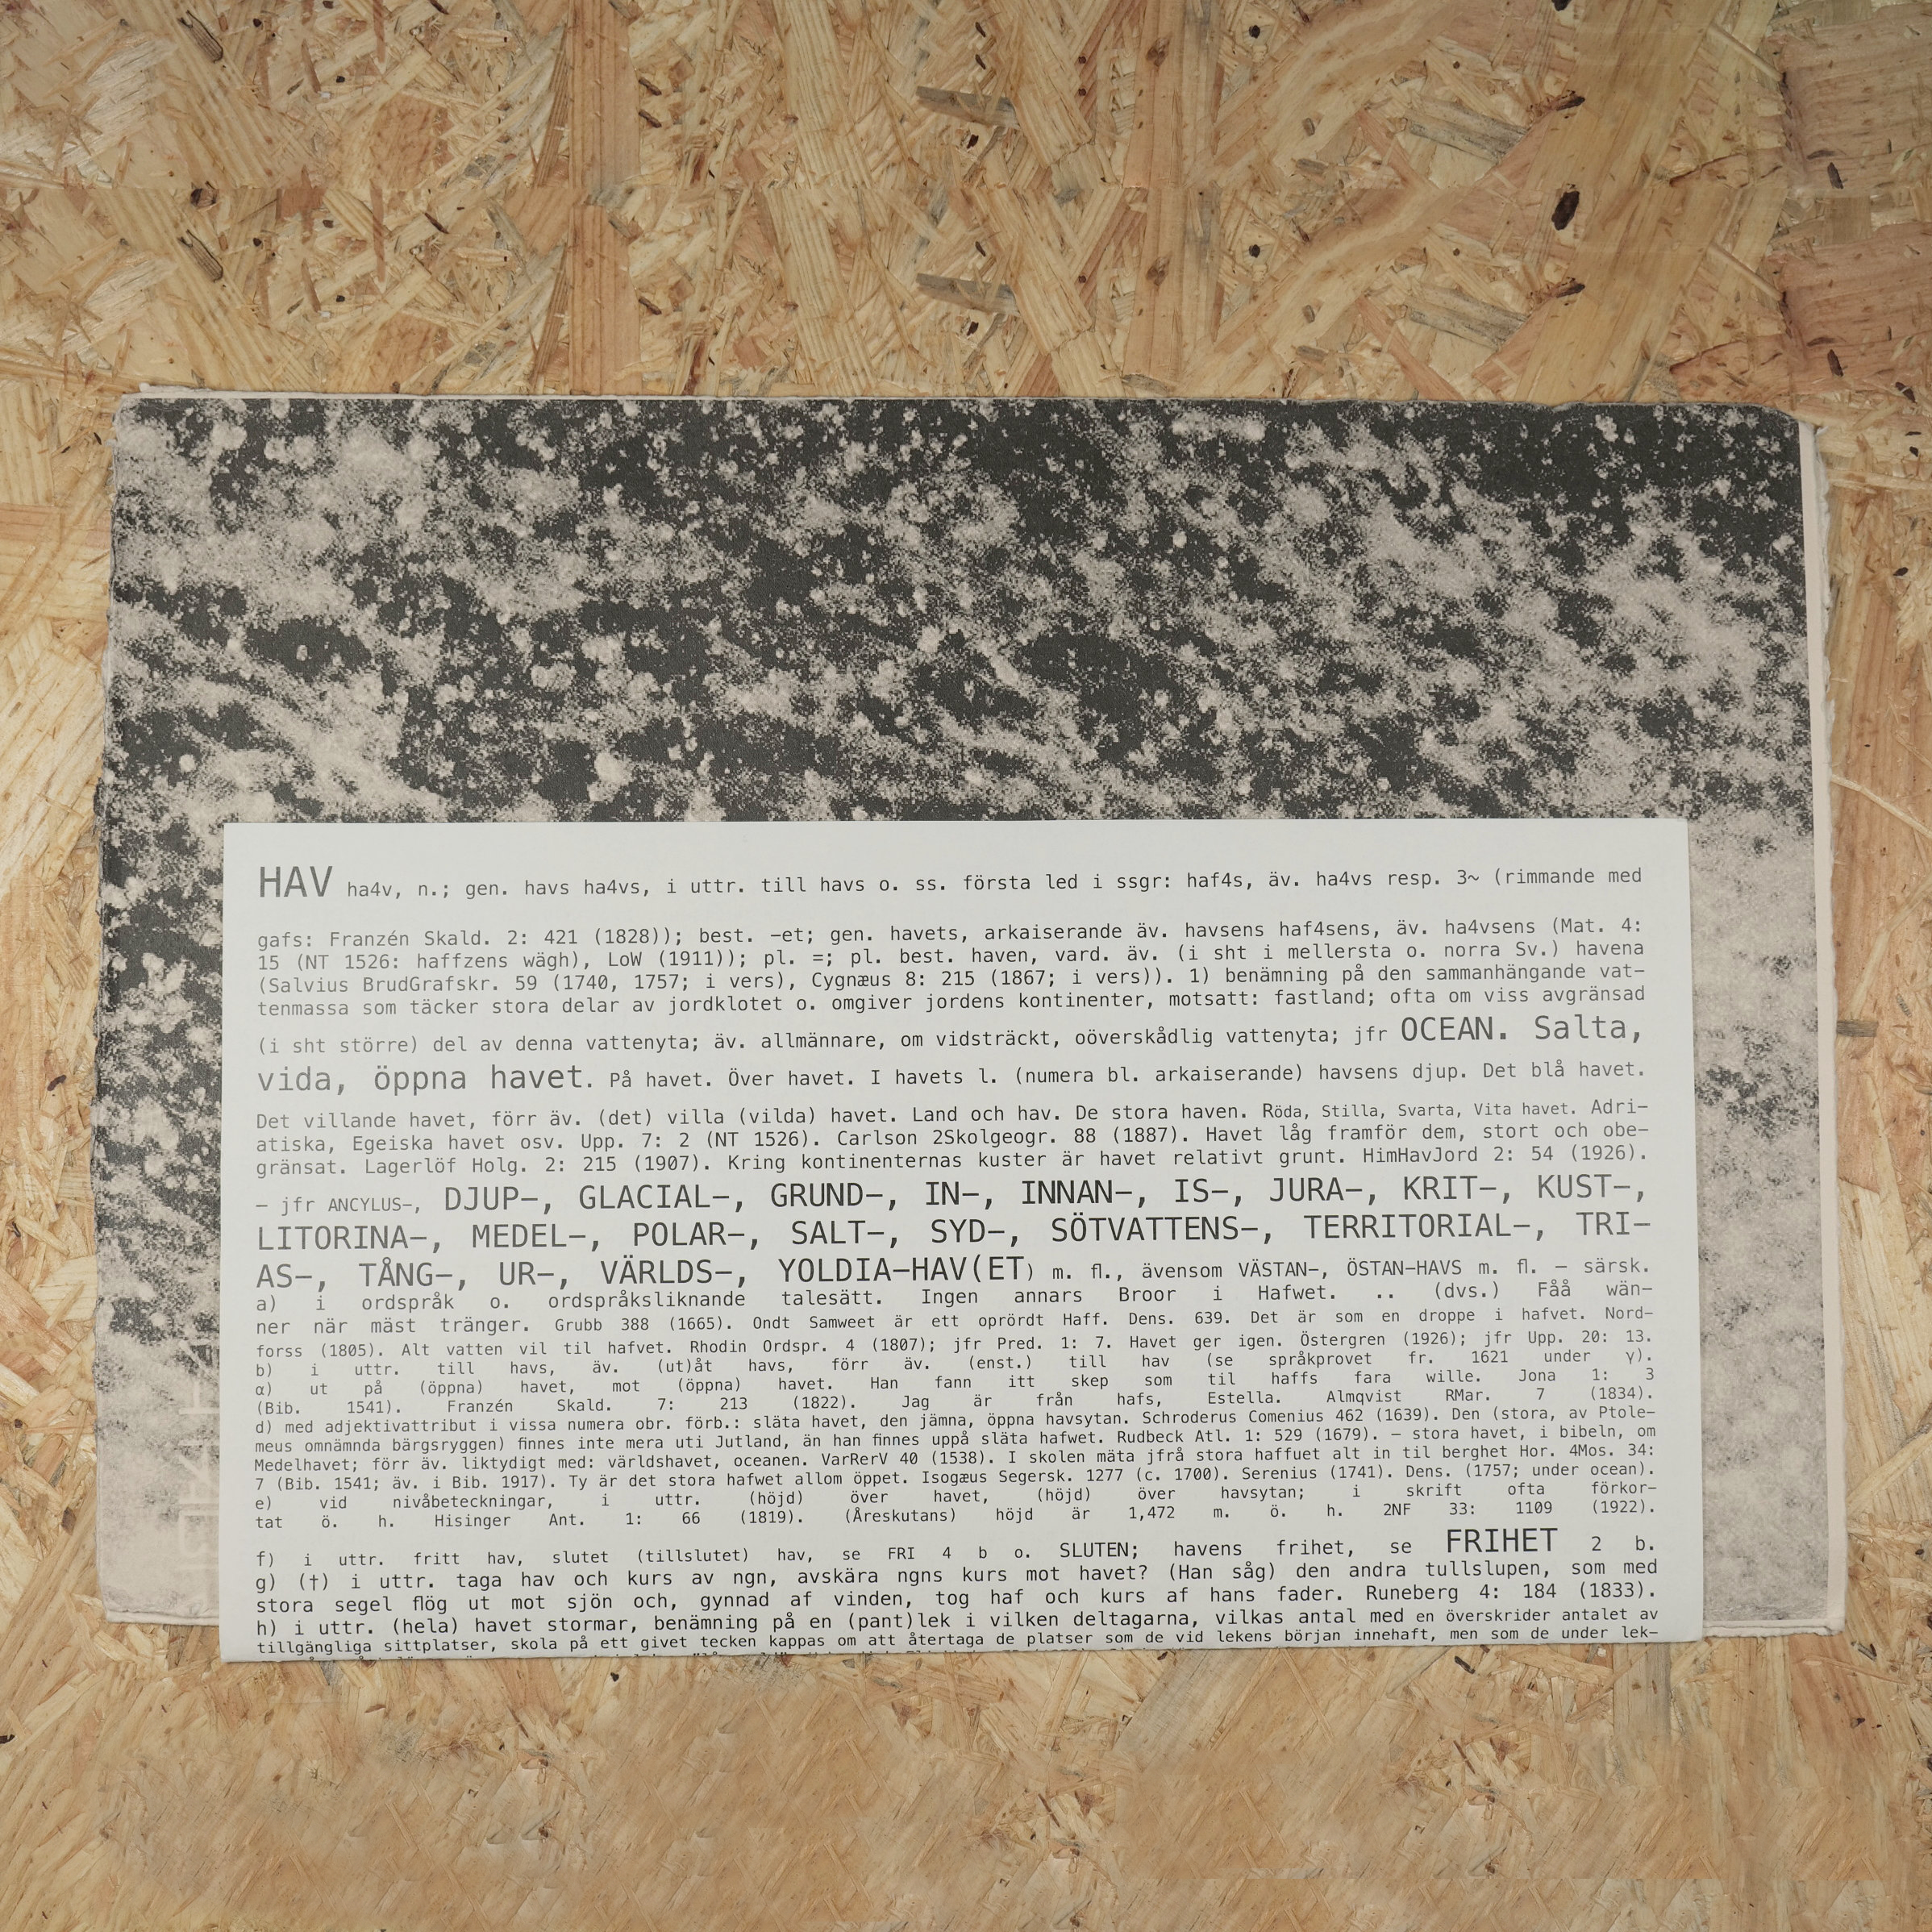 HAV ha4v, n.; gen. havs ha4vs, i uttr. till havs o. ss. första led i ssgr: haf4s, äv. ha4vs resp. 3~ (rimmande med
gafs: Franzén Skald. 2: 421 (1828)); best. –et; gen. havets, arkaiserande äv. havsens haf4sens, äv. ha4vsens (Mat. 4:
15 (NT 1526: haffzens wägh), LoW (1911)); pl. =; pl. best. haven, vard. äv. (i sht i mellersta o. norra Sv.) havena
(Salvius BrudGrafskr. 59 (1740, 1757; i vers), Cygnæus 8: 215 (1867; i vers)). 1) benämning på den sammanhängande vat–
tenmassa som täcker stora delar av jordklotet o. omgiver jordens kontinenter, motsatt: fastland; ofta om viss avgränsad
(i sht större) del av denna vattenyta; äv. allmännare, om vidsträckt, oöverskådlig vattenyta; jfr OCEAN. Salta,
vida, öppna havet. På havet. Över havet. I havets l. (numera bl. arkaiserande) havsens djup. Det blå havet.
Det villande havet, förr äv. (det) villa (vilda) havet. Land och hav. De stora haven. Röda, Stilla, Svarta, Vita havet. Adri–
atiska, Egeiska havet osv. Upp. 7: 2 (NT 1526). Carlson 2Skolgeogr. 88 (1887). Havet låg framför dem, stort och obe–
gränsat. Lagerlöf Holg. 2: 215 (1907). Kring kontinenternas kuster är havet relativt grunt. HimHavJord 2: 54 (1926).
– jfr ANCYLUS–, DJUP–, GLACIAL–, GRUND–, IN–, INNAN–, IS–, JURA–, KRIT–, KUST–,
LITORINA–, MEDEL–, POLAR–, SALT–, SYD–, SÖTVATTENS–, TERRITORIAL–, TRI–
AS–, TÅNG–, UR–, VÄRLDS–, YOLDIA–HAV(ET) m. fl., ävensom VÄSTAN–, ÖSTAN–HAVS m. fl. – särsk.
a) i ordspråk o. ordspråksliknande talesätt. Ingen annars Broor i Hafwet. .. (dvs.) Fåå wän–
ner när mäst tränger. Grubb 388 (1665). Ondt Samweet är ett oprördt Haff. Dens. 639. Det är som en droppe i hafvet. Nord–
forss (1805). Alt vatten vil til hafvet. Rhodin Ordspr. 4 (1807); jfr Pred. 1: 7. Havet ger igen. Östergren (1926); jfr Upp. 20: 13.
b) i uttr. till havs, äv. (ut)åt havs, förr äv. (enst.) till hav (se språkprovet fr. 1621 under γ).
α) ut på (öppna) havet, mot (öppna) havet. Han fann itt skep som til haffs fara wille. Jona 1: 3
(Bib. 1541). Franzén Skald. 7: 213 (1822). Jag är från hafs, Estella. Almqvist RMar. 7 (1834).
d) med adjektivattribut i vissa numera obr. förb.: släta havet, den jämna, öppna havsytan. Schroderus Comenius 462 (1639). Den (stora, av Ptole–
meus omnämnda bärgsryggen) finnes inte mera uti Jutland, än han finnes uppå släta hafwet. Rudbeck Atl. 1: 529 (1679). – stora havet, i bibeln, om
Medelhavet; förr äv. liktydigt med: världshavet, oceanen. VarRerV 40 (1538). I skolen mäta jfrå stora haffuet alt in til berghet Hor. 4Mos. 34:
7 (Bib. 1541; äv. i Bib. 1917). Ty är det stora hafwet allom öppet. Isogæus Segersk. 1277 (c. 1700). Serenius (1741). Dens. (1757; under ocean).
e) vid nivåbeteckningar, i uttr. (höjd) över havet, (höjd) över havsytan; i skrift ofta förkor–
tat ö. h. Hisinger Ant. 1: 66 (1819). (Åreskutans) höjd är 1,472 m. ö. h. 2NF 33: 1109 (1922).
f) i uttr. fritt hav, slutet (tillslutet) hav, se FRI 4 b o. SLUTEN; havens frihet, se FRIHET 2 b.
g) (†) i uttr. taga hav och kurs av ngn, avskära ngns kurs mot havet? (Han såg) den andra tullslupen, som med
stora segel flög ut mot sjön och, gynnad af vinden, tog haf och kurs af hans fader. Runeberg 4: 184 (1833).
h) i uttr. (hela) havet stormar, benämning på en (pant)lek i vilken deltagarna, vilkas antal med en överskrider antalet av
tillgängliga sittplatser, skola på ett givet tecken kappas om att återtaga de platser som de vid lekens början innehaft, men som de under lek–